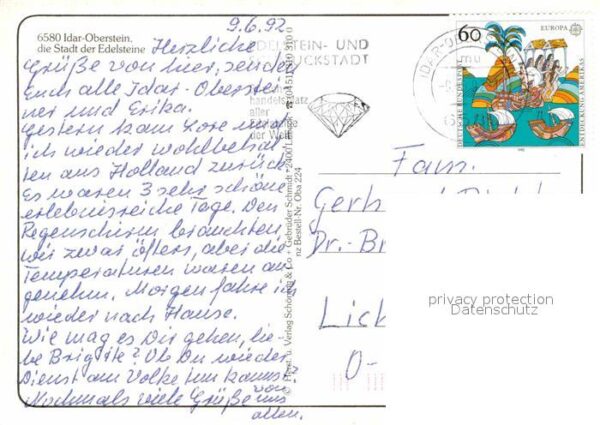 9.6.92
6580 Idar-Oberstein,
die Stadt der Edelsteine
Herzliche
Grüße von hier, senden
Euch alle Idar-Oberstei-
ner und Erika.
Gestern kam Lore und
ich wieder wohlbehal-
ten aus Holland zurück.
Es waren 3 sehr schöne
erlebnisreiche Tage. Den
Regenschirm brauchten
wir zwar öfters, aber die
Temperaturen waren an-
genehm. Morgen fahre ich
wieder nach Hause.
Wie mag es Dir gehen, lie-
be Brigitte? Ob Du wieder
Dienst am Volke tun kannst?
Nochmals viele Grüße von uns
allen.
EDELSTEIN- UND
SCHMUCKSTADT
handelsplatz
aller
der Welt
© Herst. u. Verlag Schöning & Co + Gebrüder Schmidt · 2400 Lübeck
nz Bestell-Nr. Oba 224
60
EUROPA
DEUTSCHE BUNDESPOST
ENTDECKUNG AMERIKAS
1992
IDAR-O
Fam.
Gerh
Dr.-Br
Lich
O-
privacy protection
Datenschutz